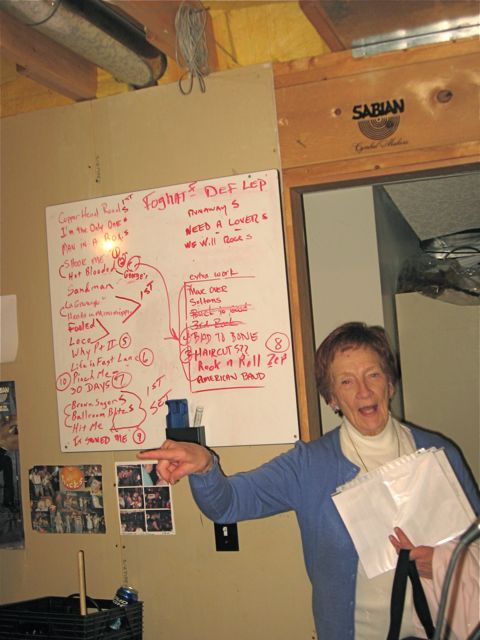 SABIAN
Cymbal Makers
FOGHAT S DEF LEP
Copper Head Road S
1ST
I'm the Only One
MAN IN A BOX S
SHOOK ME
Hot Blooded
George's
Sandman
1ST
La Grange
Heads in Mississippi
Fooled
Loco
Why Pt II 5
Life in Fast Lane 6
10 Pinch Me
30 DAYS 7
1ST
SET
Brown Sugar S
Ballroom Blitz S
Hit Me
It SAVED ME 9
RUNAWAY S
NEED A LOVER S
WE WILL ROCK S
extra work
MOVE OVER
Sultans
3rd Rock
BAD TO BONE
HAIRCUT S??
8
ROCK n Roll ZEP
AMERICAN BAND